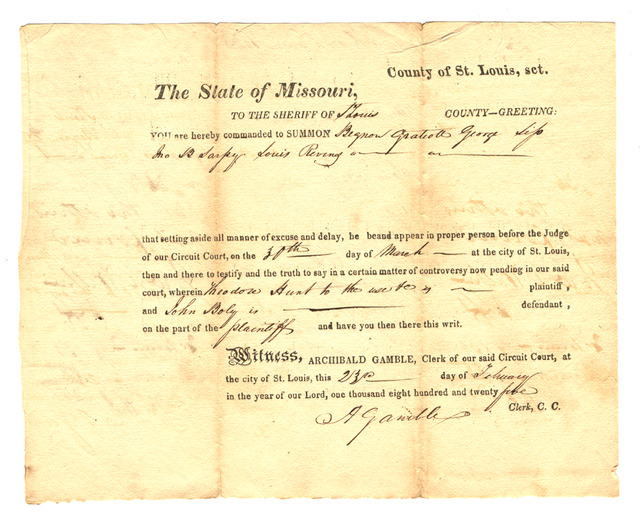 County of St. Louis, sct.
The State of Missouri,
TO THE SHERIFF OF St Louis COUNTY—GREETING:
YOU are hereby commanded to SUMMON Gratiott George
Jno B Sarpy Louis
that setting aside all manner of excuse and delay, he be and appear in proper person before the Judge
of our Circuit Court, on the 30th day of March at the city of St. Louis,
then and there to testify and the truth to say in a certain matter of controversy now pending in our said
court, wherein Theodore Hunt to the use &c is plaintiff,
and John Boly is defendant,
on the part of the plaintiff and have you then there this writ.
Witness, ARCHIBALD GAMBLE, Clerk of our said Circuit Court, at
the city of St. Louis, this 23rd day of February
in the year of our Lord, one thousand eight hundred and twenty five
A Gamble Clerk, C. C.